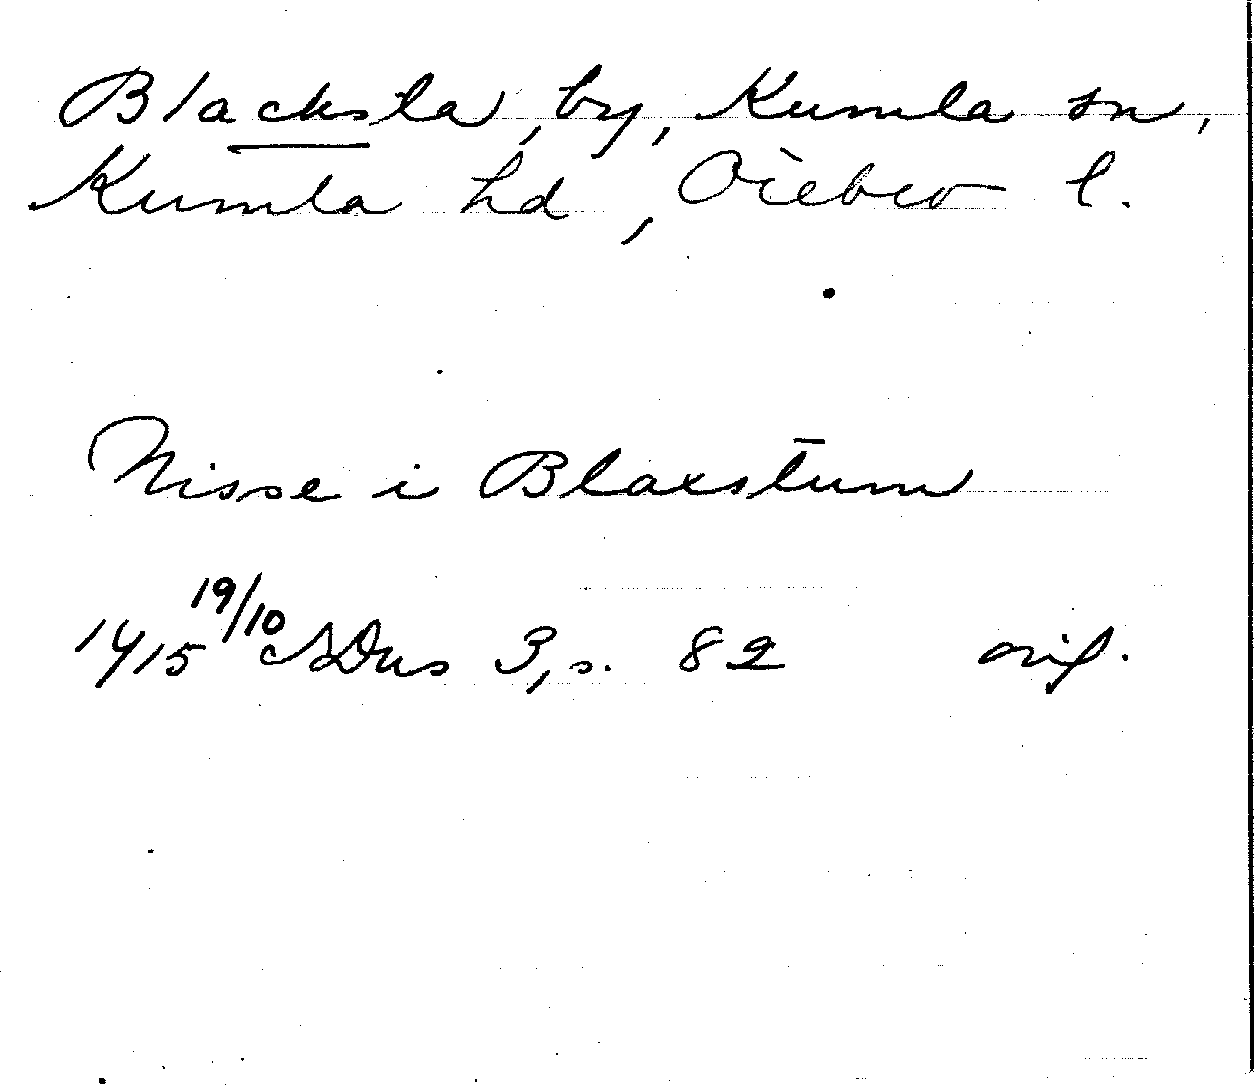 Blacksta, by, Kumla sn,
Kumla hd, Örebro l.
Nisse i Blaxstum
1415 19/10 SDns 3, s. 82 orig.